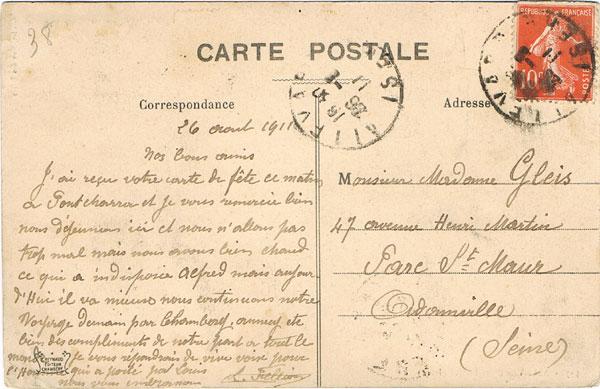 38
CARTE POSTALE
Correspondance
Adresse
REPUBLIQUE FRANÇAISE
10
POSTES
ALLEVARD
ISÈRE
26 août 1911
Nos bons amis
J'ai reçu votre carte de fête ce matin
a Pontcharra et je vous remercie bien
nous déjeunons ici et nous n'allons pas
trop mal mais nous avons bien chaud
ce qui a indisposé Alfred mais aujour
d'Hui il va mieux nous continuons notre
Voyage demain par Chambery, annecy etc
bien des compliments de notre part a tout le
monde je vous répondrais de vive voix pour
qui a posé par Louis
nous vous embrassons
Monsieur Madame Gleis
47 avenue Henri Martin
Parc St Maur
Adamville
(Seine)
L. REYNAUD
EDITEUR
CHAMBERY